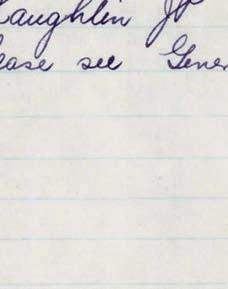 Laughlin JP
ease see Gener